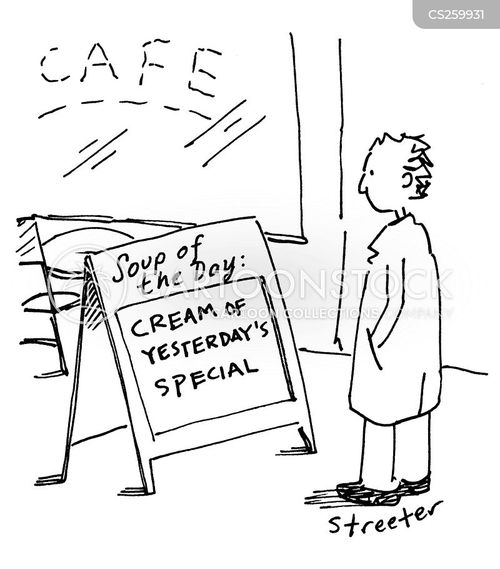 CS259931
CAFE
Soup of
the Day:
CREAM OF
YESTERDAY'S
SPECIAL
CARTOONSTOCK
CARTOON COLLECTIONS COMPANY
Streeter